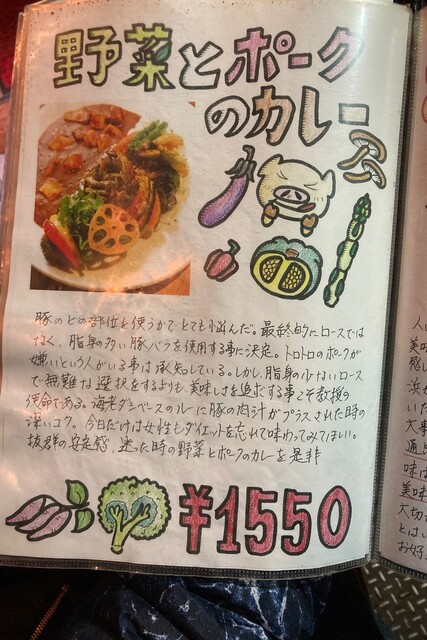 野菜とポーク
のカレー
豚のどの部位を使うかでとても悩んだ。最終的にロースでは
なく、脂身の多い豚バラを使用する事に決定。トロトロのポークが
嫌いという人がいる事は承知している。しかし、脂身の少ないロース
で無難な選択をするよりも美味しさを追求する事こそ教授の
使命である。海老ダシベースのルーに豚の肉汁がプラスされた時の
深いコク。今日だけは女性もダイエットを忘れて味わってみてほしい。
抜群の安定感、迷った時の野菜とポークのカレーを是非
¥1550
人
美味
感し
浜
いた
大事
通
味は
美味
大切
とは
お好